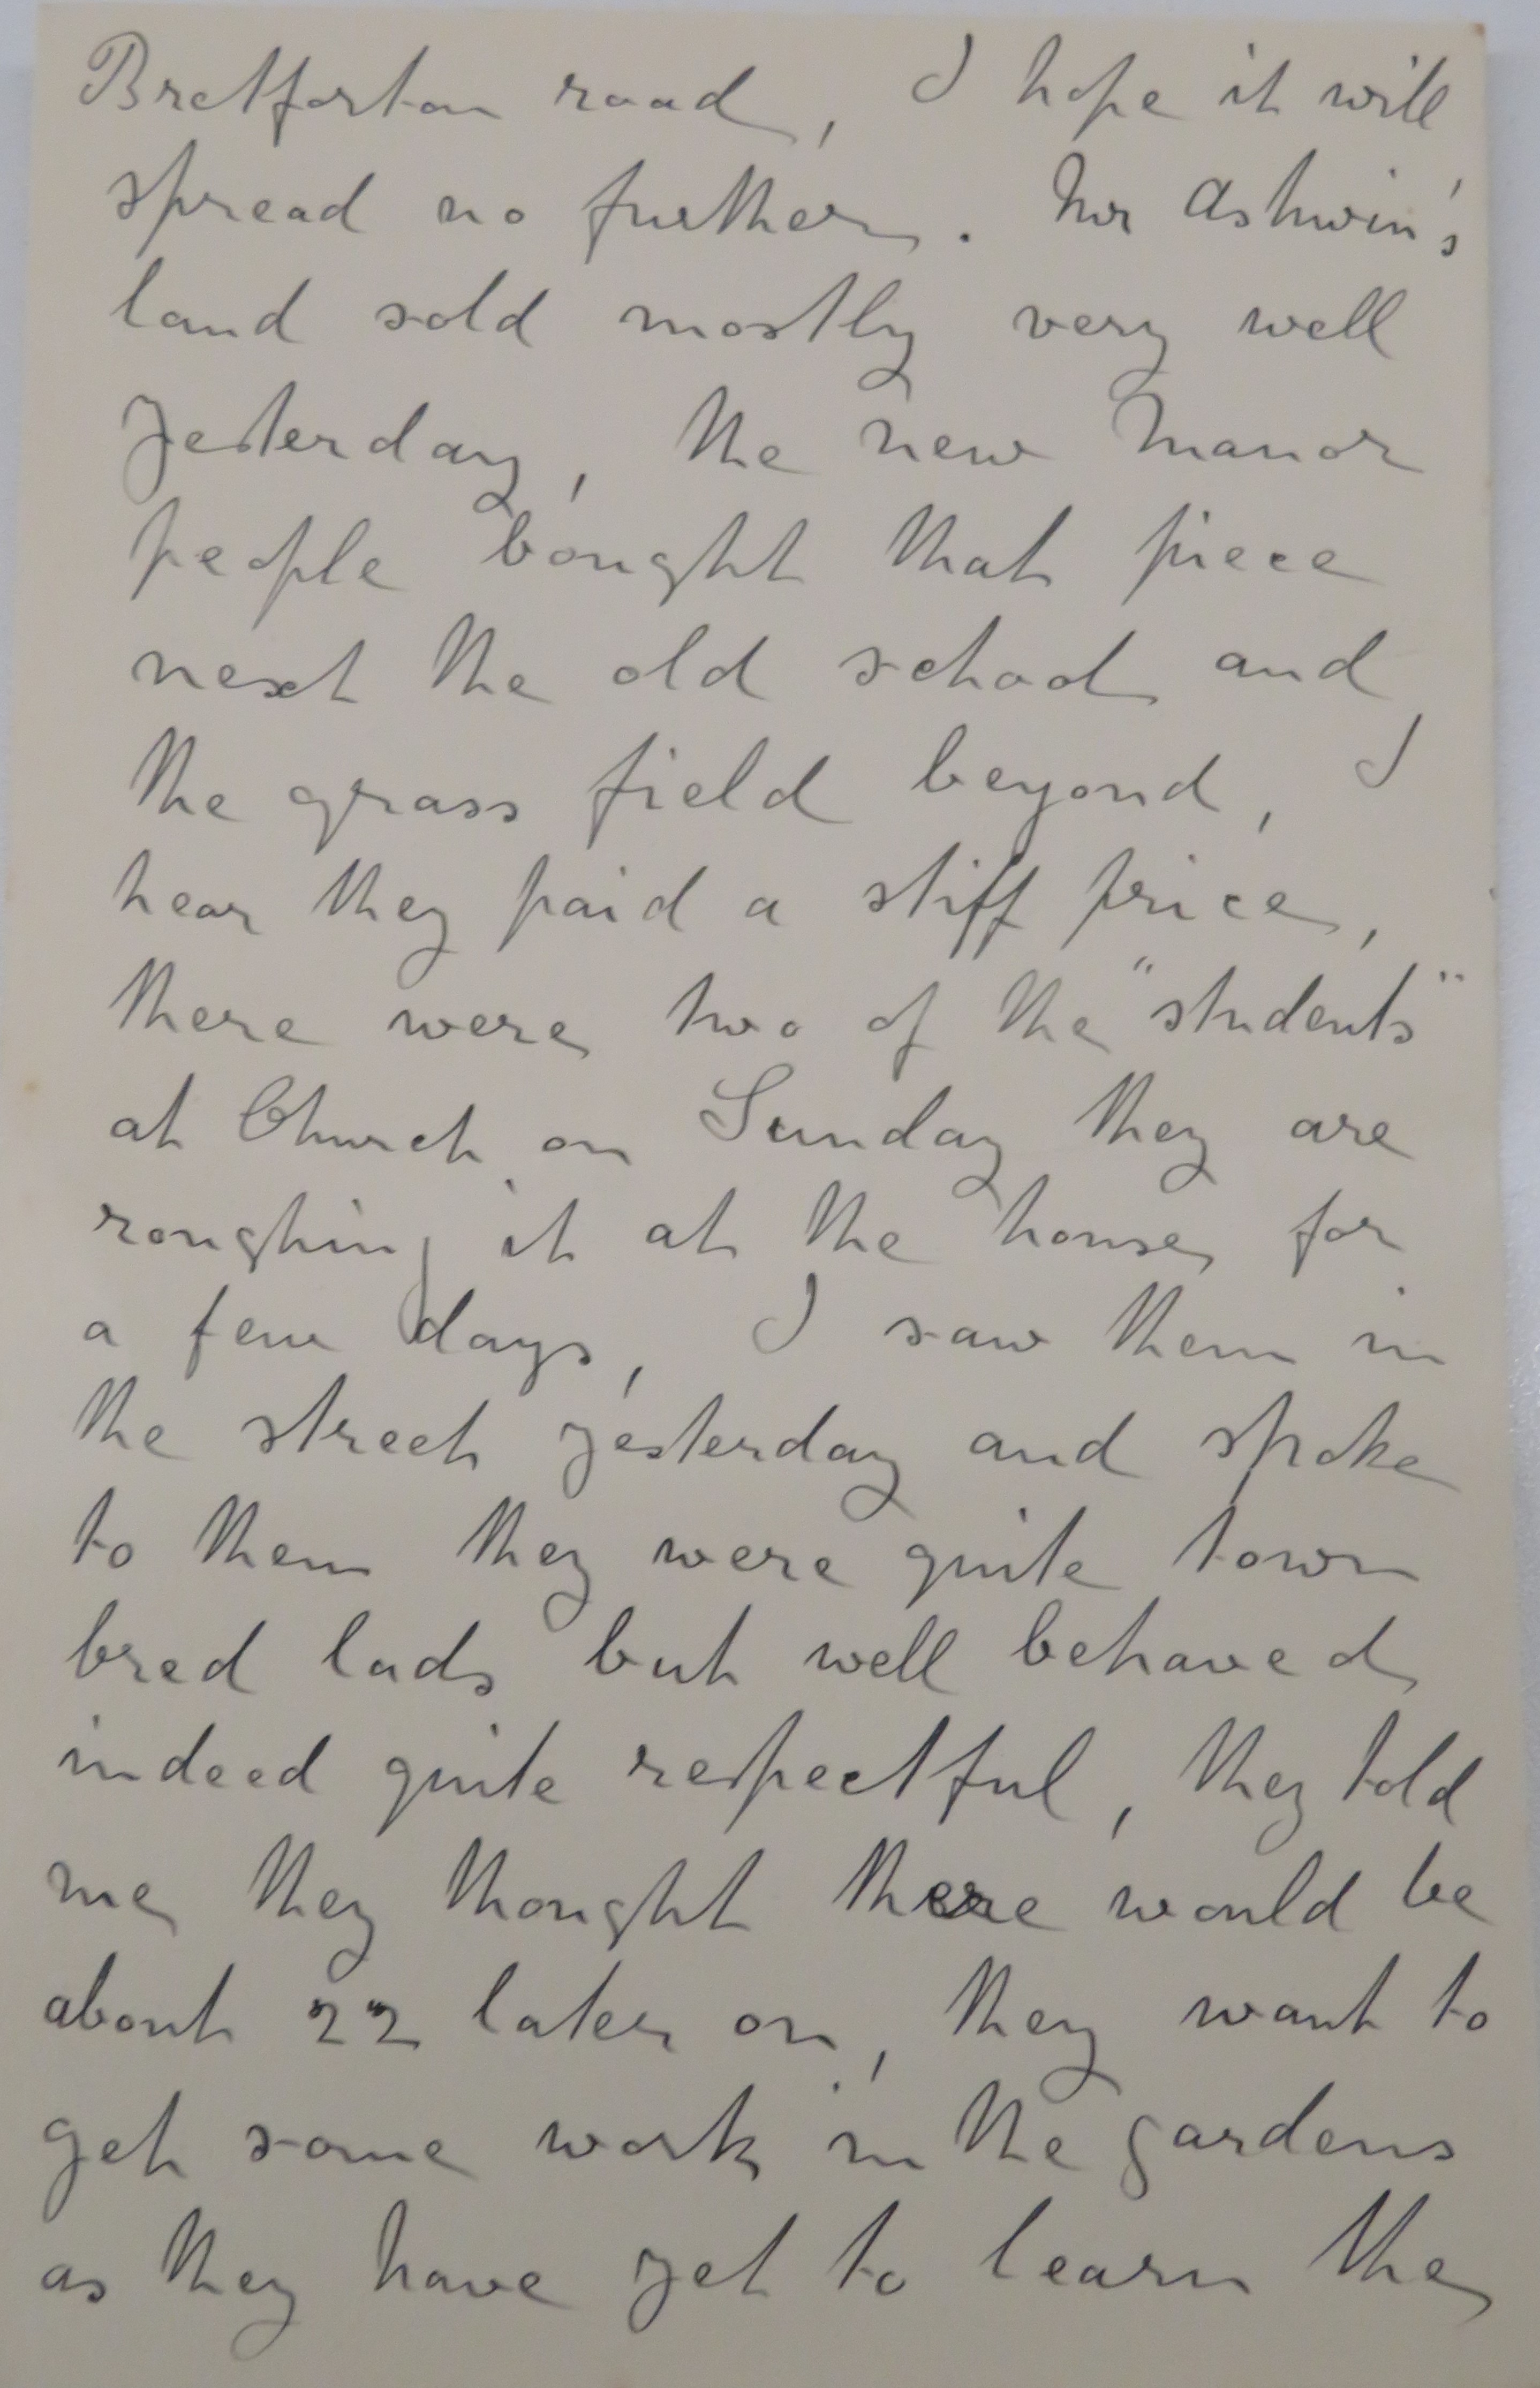 Bretforton road, I hope it will
spread no further. Mr Ashwin's
land sold mostly very well
yesterday, the new Manor
people bought that piece
next the old school and
the grass field beyond, I
hear they paid a stiff price,
there were two of the "students"
at Church on Sunday they are
roughing it at the house for
a few days, I saw them in
the street yesterday and spoke
to them they were quite town
bred lads but well behaved
indeed quite respectful, they told
me they thought there would be
about 22 later on, they want to
get some work in the gardens
as they have yet to learn the